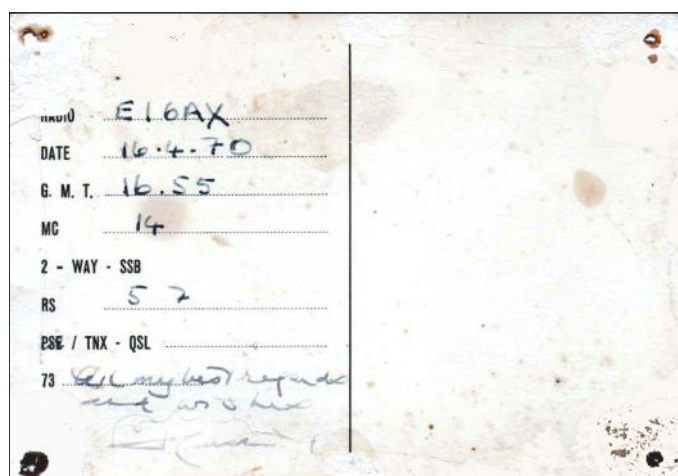 RADIO EI6AX
DATE 16.4.70
G. M. T. 16.55
MC 14
2 - WAY - SSB
RS 5 7
PSE / TNX - QSL
73 All my best regards
and wishes